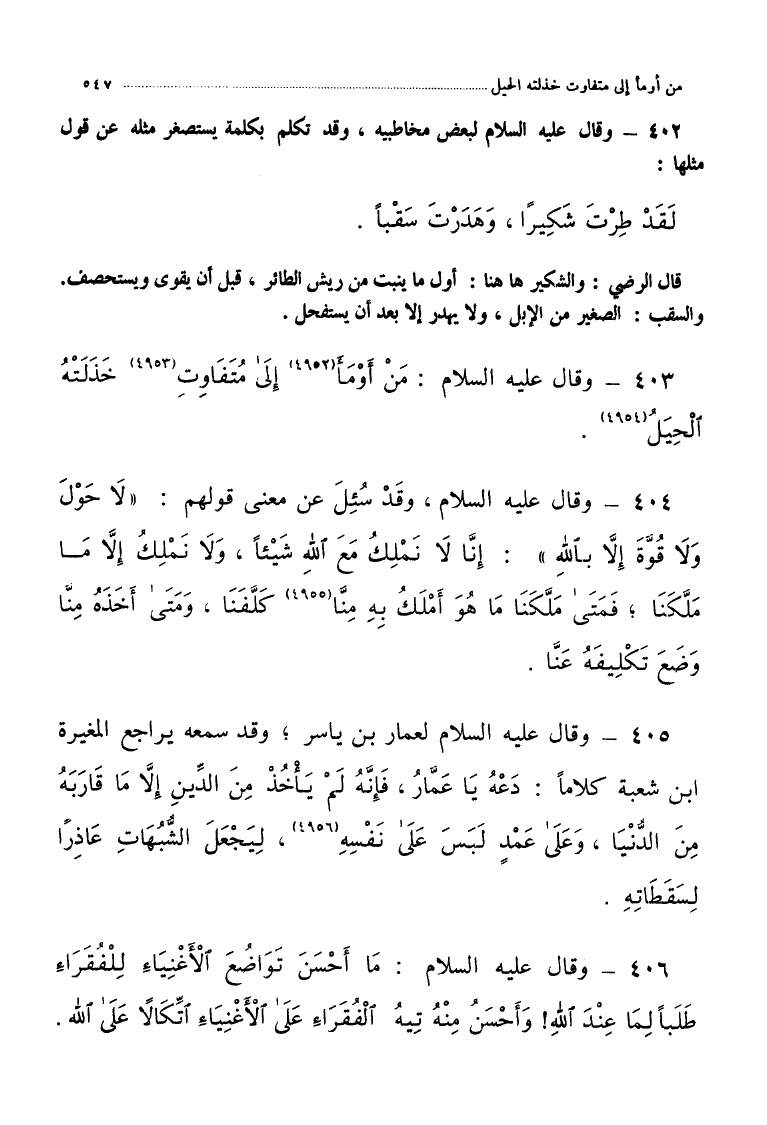 من أومأ إلى متفاوت خذلته الحيل ........................................ ٥٤٧
٤٠٢ – وقال عليه السلام لبعض مخاطبيه ، وقد تكلم بكلمة يستصغر مثله عن قول
مثلها :
لَقَدْ طِرْتَ شَكِيرًا ، وَهَدَرْتَ سَقْباً .
قال الرضي : والشكير ها هنا : أول ما ينبت من ريش الطائر ، قبل أن يقوى ويستحصف.
والسقب : الصغير من الإبل ، ولا يهدر إلا بعد أن يستفحل .
٤٠٣ – وقال عليه السلام : مَنْ أَوْمَأَ(٤٩٥٢) إِلَىٰ مُتَفَاوِتٍ(٤٩٥٣) خَذَلَتْهُ
ٱلْحِيَلُ(٤٩٥٤) .
٤٠٤ – وقال عليه السلام ، وقَدْ سُئِلَ عن معنى قولهم : «لَا حَوْلَ
وَلَا قُوَّةَ إِلَّا بِٱللهِ » : إِنَّا لَا نَمْلِكُ مَعَ ٱللهِ شَيْئاً ، وَلَا نَمْلِكُ إِلَّا مَا
مَلَّكَنَا ؛ فَمَتَىٰ مَلَّكَنَا مَا هُوَ أَمْلَكُ بِهِ مِنَّا(٤٩٥٥) كَلَّفَنَا ، وَمَتَىٰ أَخَذَهُ مِنَّا
وَضَعَ تَكْلِيفَهُ عَنَّا .
٤٠٥ – وقال عليه السلام لعمار بن ياسر ؛ وقد سمعه يراجع المغيرة
ابن شعبة كلاماً : دَعْهُ يَا عَمَّارُ ، فَإِنَّهُ لَمْ يَأْخُذْ مِنَ الدِّينِ إِلَّا مَا قَارَبَهُ
مِنَ الدُّنْيَا ، وَعَلَىٰ عَمْدٍ لَبَسَ عَلَىٰ نَفْسِهِ(٤٩٥٦) ، لِيَجْعَلَ الشُّبُهَاتِ عَاذِرًا
لِسَقَطَاتِهِ .
٤٠٦ – وقال عليه السلام : مَا أَحْسَنَ تَوَاضُعَ ٱلْأَغْنِيَاءِ لِلْفُقَرَاءِ
طَلَباً لِمَا عِنْدَ ٱللهِ! وَأَحْسَنُ مِنْهُ تِيهُ ٱلْفُقَرَاءِ عَلَىٰ ٱلْأَغْنِيَاءِ ٱتِّكَالًا عَلَىٰ ٱلله .